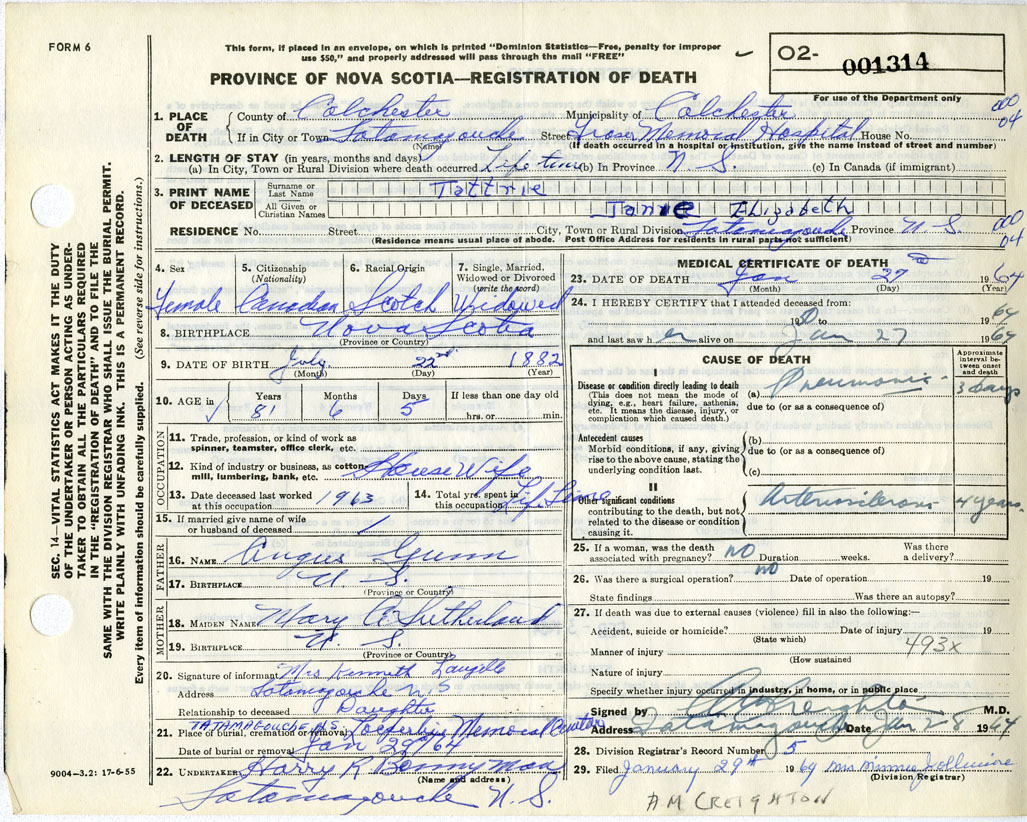 FORM 6
This form, if placed in an envelope, on which is printed "Dominion Statistics—Free, penalty for improper
use $50," and properly addressed will pass through the mail "FREE"
PROVINCE OF NOVA SCOTIA—REGISTRATION OF DEATH
O2- 001314
For use of the Department only
000
04
1. PLACE OF DEATH
County of Colchester Municipality of Colchester
If in City or Town Tatamagouche Street Fraser Memorial Hospital House No.
(Name) (If death occurred in a hospital or institution, give the name instead of street and number)
2. LENGTH OF STAY (in years, months and days)
(a) In City, Town or Rural Division where death occurred Life time (b) In Province N. S. (c) In Canada (if immigrant)
3. PRINT NAME OF DECEASED
Surname or Last Name Tattrie
All Given or Christian Names Janie Elizabeth
RESIDENCE No. Street City, Town or Rural Division Tatamagouche Province N. S.
000
04
(Residence means usual place of abode. Post Office Address for residents in rural parts not sufficient)
4. Sex
Female
5. Citizenship
(Nationality)
Canadian
6. Racial Origin
Scotch
7. Single, Married, Widowed or Divorced
(write the word)
Widowed
8. BIRTHPLACE Nova Scotia
(Province or Country)
9. DATE OF BIRTH July 22nd 1882
(Month) (Day) (Year)
10. AGE in Years Months Days If less than one day old
81 6 5 hrs. or min.
OCCUPATION
11. Trade, profession, or kind of work as
spinner, teamster, office clerk, etc.
12. Kind of industry or business, as cotton
mill, lumbering, bank, etc. House Wife
13. Date deceased last worked
at this occupation 1963
14. Total yrs. spent in
this occupation Life Time
15. If married give name of wife
or husband of deceased
FATHER
16. NAME Angus Gunn
17. BIRTHPLACE N. S.
(Province or Country)
MOTHER
18. MAIDEN NAME Mary A Sutherland
19. BIRTHPLACE N. S.
(Province or Country)
20. Signature of informant Mrs Kenneth Langille
Address Tatamagouche N S
Relationship to deceased Daughter
TATAMAGOUCHE N.S
21. Place of burial, cremation or removal Memorial
Date of burial or removal Jan 29/64
22. UNDERTAKER Harry R Bonnyman
(Name and address)
Tatamagouche N. S.
9004-3.2: 17-6-55
MEDICAL CERTIFICATE OF DEATH
23. DATE OF DEATH Jan 27 1964
(Month) (Day) (Year)
24. I HEREBY CERTIFY that I attended deceased from:
19 to 19 64
and last saw her alive on Jan 27 1964
CAUSE OF DEATH
Approximate interval between onset and death
I
Disease or condition directly leading to death
(This does not mean the mode of
dying, e.g., heart failure, asthenia,
etc. It means the disease, injury, or
complication which caused death.)
(a) Pneumonia 3 days
due to (or as a consequence of)
Antecedent causes
Morbid conditions, if any, giving
rise to the above cause, stating the
underlying condition last.
(b)
due to (or as a consequence of)
(c)
II
Other significant conditions
contributing to the death, but not
related to the disease or condition
causing it.
Arteriosclerosis 4 years
25. If a woman, was the death
associated with pregnancy? NO Duration weeks. Was there a delivery?
26. Was there a surgical operation? NO Date of operation 19
State findings Was there an autopsy?
27. If death was due to external causes (violence) fill in also the following:—
Accident, suicide or homicide? Date of injury 19
(State which)
493x
Manner of injury
(How sustained
Nature of injury
Specify whether injury occurred in industry, in home, or in public place
Signed by A M Creighton M.D.
Address Tatamagouche Date Jan 28 1964
28. Division Registrar's Record Number 5
29. Filed January 29th 1964 Mrs Minnie
(Division Registrar)
A M CREIGHTON
SEC. 14—VITAL STATISTICS ACT MAKES IT THE DUTY
OF THE UNDERTAKER OR PERSON ACTING AS UNDER-
TAKER TO OBTAIN ALL THE PARTICULARS REQUIRED
IN THE "REGISTRATION OF DEATH" AND TO FILE THE
SAME WITH THE DIVISION REGISTRAR WHO SHALL ISSUE THE BURIAL PERMIT.
WRITE PLAINLY WITH UNFADING INK. THIS IS A PERMANENT RECORD.
Every item of information should be carefully supplied. (See reverse side for instructions.)